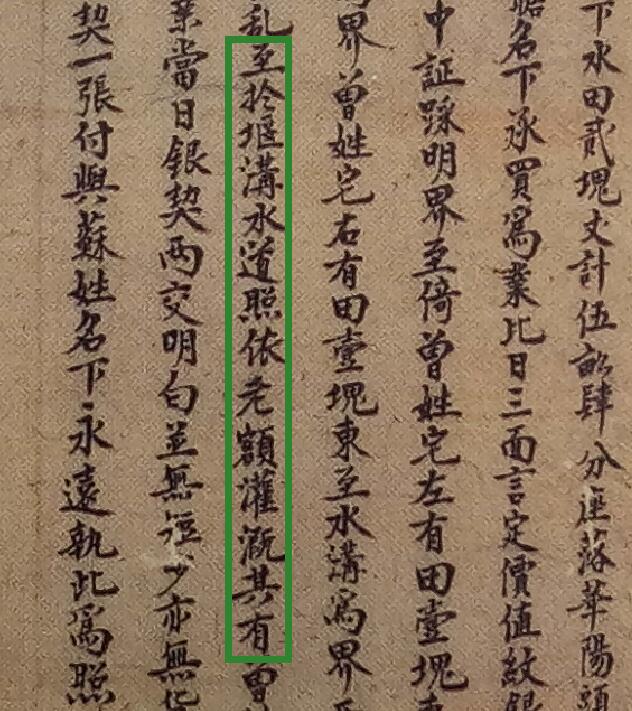 下水田貳塊丈計伍畝肆分座落華陽
名下承買為業比日三面言定價值紋銀
中証踩明界至倚曾姓宅左有田壹塊
界曾姓宅右有田壹塊東至水溝為界
乱至扵堰溝水道照依老額灌溉其有曾
業當日銀契兩交明白並無短少亦無
契一張付與蘇姓名下永遠執此為照